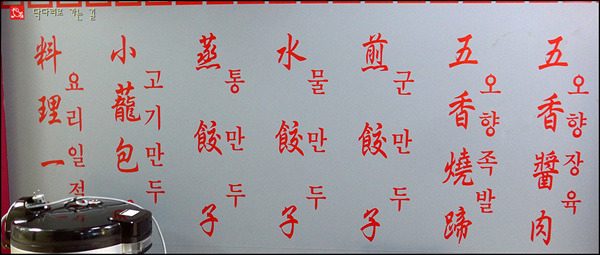 닥다리로 가는 길
五香醬肉
오향장육
五香燒蹄
오향족발
煎餃子
군만두
水餃子
물만두
蒸餃子
통만두
小籠包
고기만두
料理一
요리일